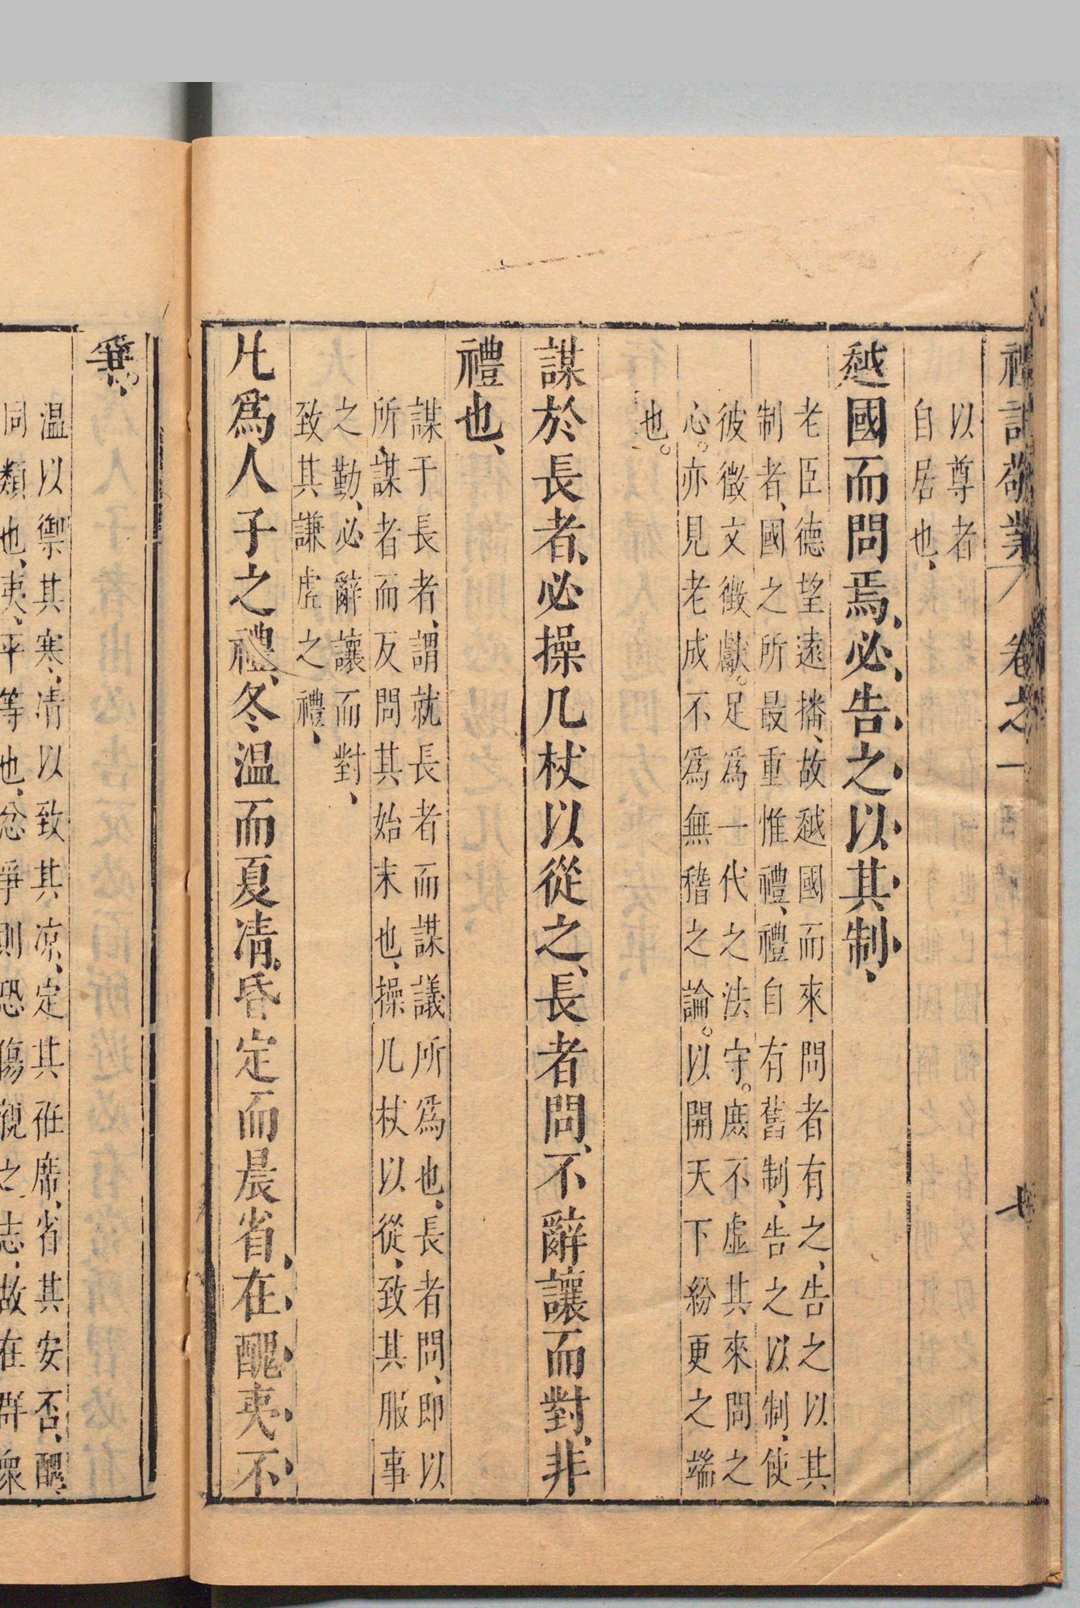 禮記敬業 卷之一 七
以尊者
自居也、
越國而問焉、必告之以其制、
老臣德望遠播、故越國而來問者有之、告之以其
制者、國之所最重惟禮、禮自有舊制、告之以制、使
彼徵文徵獻。足為一代之法守。庶不虛其來問之
心。亦見老成不為無稽之論。以開天下紛更之端
也。
謀於長者、必操几杖以從之、長者問、不辭讓而對、非
禮也、
謀于長者、謂就長者而謀議所為也、長者問、即以
所謀者而反問其始末也、操几杖以從、致其服事
之勤、必辭讓而對、
致其謙虛之禮、
凡為人子之禮、冬溫而夏凊、昏定而晨省、在醜夷不
爭。
溫以禦其寒、凊以致其凉、定其袵席、省其安否、醜、
同類也、夷、平等也、忿爭則恐傷親之志、故在群衆